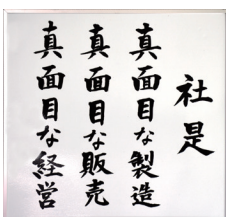 社是
真面目な製造
真面目な販売
真面目な経営